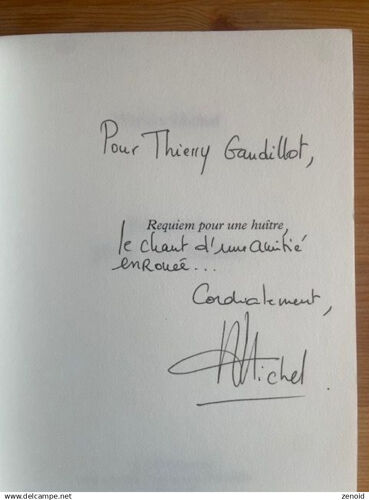 Pour Thierry Gaudillot,
Requiem pour une huître,
le chant d'une amitié
enrouée...
Cordialement,
Michel
www.delcampe.net
zenoid